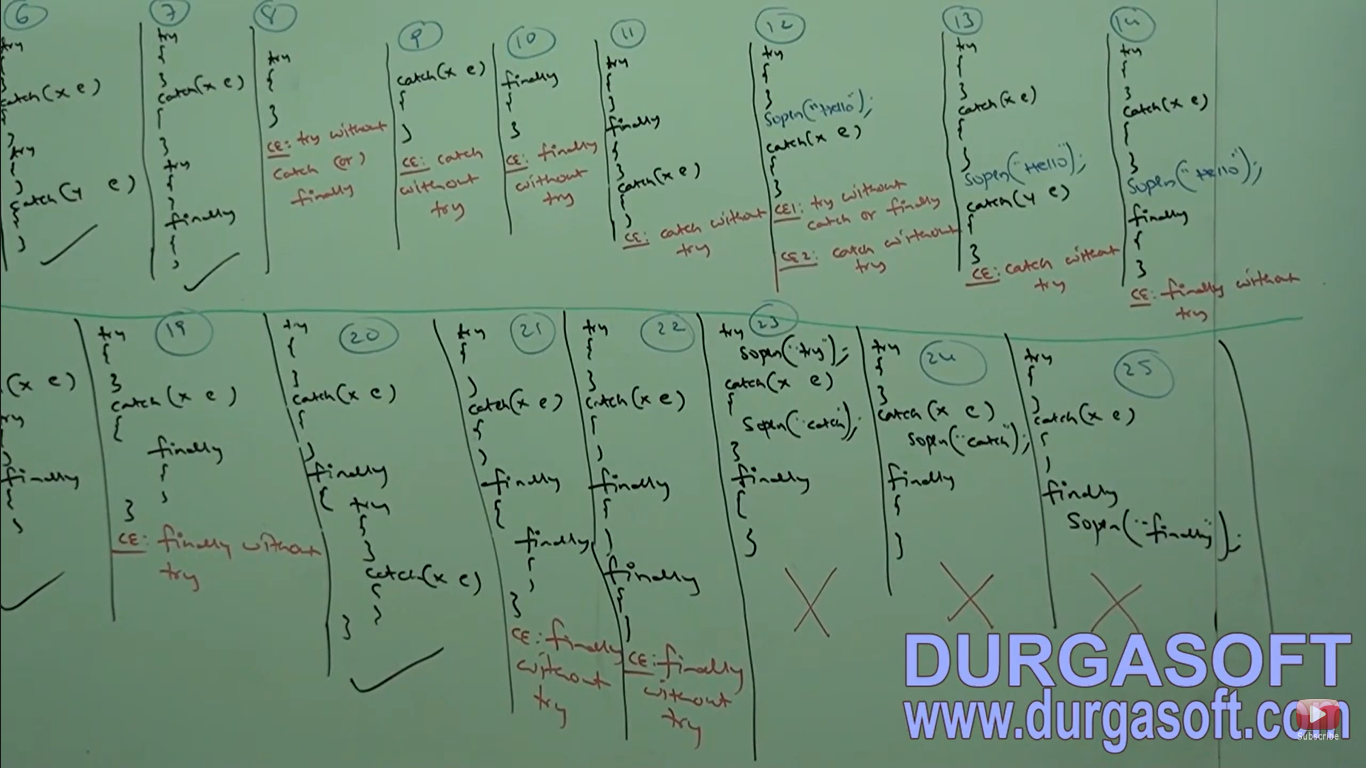 6
try
{
}
catch(x e)
{
}
try
{
}
catch(y e)
{
}
7
try
{
}
catch(x e)
{
}
try
{
}
finally
{
}
8
try
{
}
CE: try without
catch (or)
finally
9
catch(x e)
{
}
CE: catch
without
try
10
finally
{
}
CE: finally
without
try
11
try
{
}
finally
{
}
catch(x e)
{
}
CE: catch without
try
12
try
{
}
Sopln("Hello");
catch(x e)
{
}
CE1: try without
catch or finally
CE2: catch without
try
13
try
{
}
catch(x e)
{
}
Sopln("Hello");
catch(y e)
{
}
CE: catch without
try
14
try
{
}
catch(x e)
{
}
Sopln("Hello");
finally
{
}
CE: finally without
try
(x e)
try
}
finally
{
}
19
try
{
}
catch(x e)
{
finally
{
}
}
CE: finally without
try
20
try
{
}
catch(x e)
{
}
finally
{
try
{
}
catch(x e)
{
}
}
21
try
{
}
catch(x e)
{
}
finally
{
finally
{
}
}
CE: finally
without
try
22
try
{
}
catch(x e)
{
}
finally
{
}
finally
{
}
CE: finally
without
try
23
try
Sopln("try");
catch(x e)
{
Sopln("catch");
}
finally
{
}
24
try
{
}
catch(x e)
Sopln("catch");
finally
{
}
25
try
{
}
catch(x e)
{
}
finally
Sopln("finally");
DURGASOFT
www.durgasoft.com
Subscribe